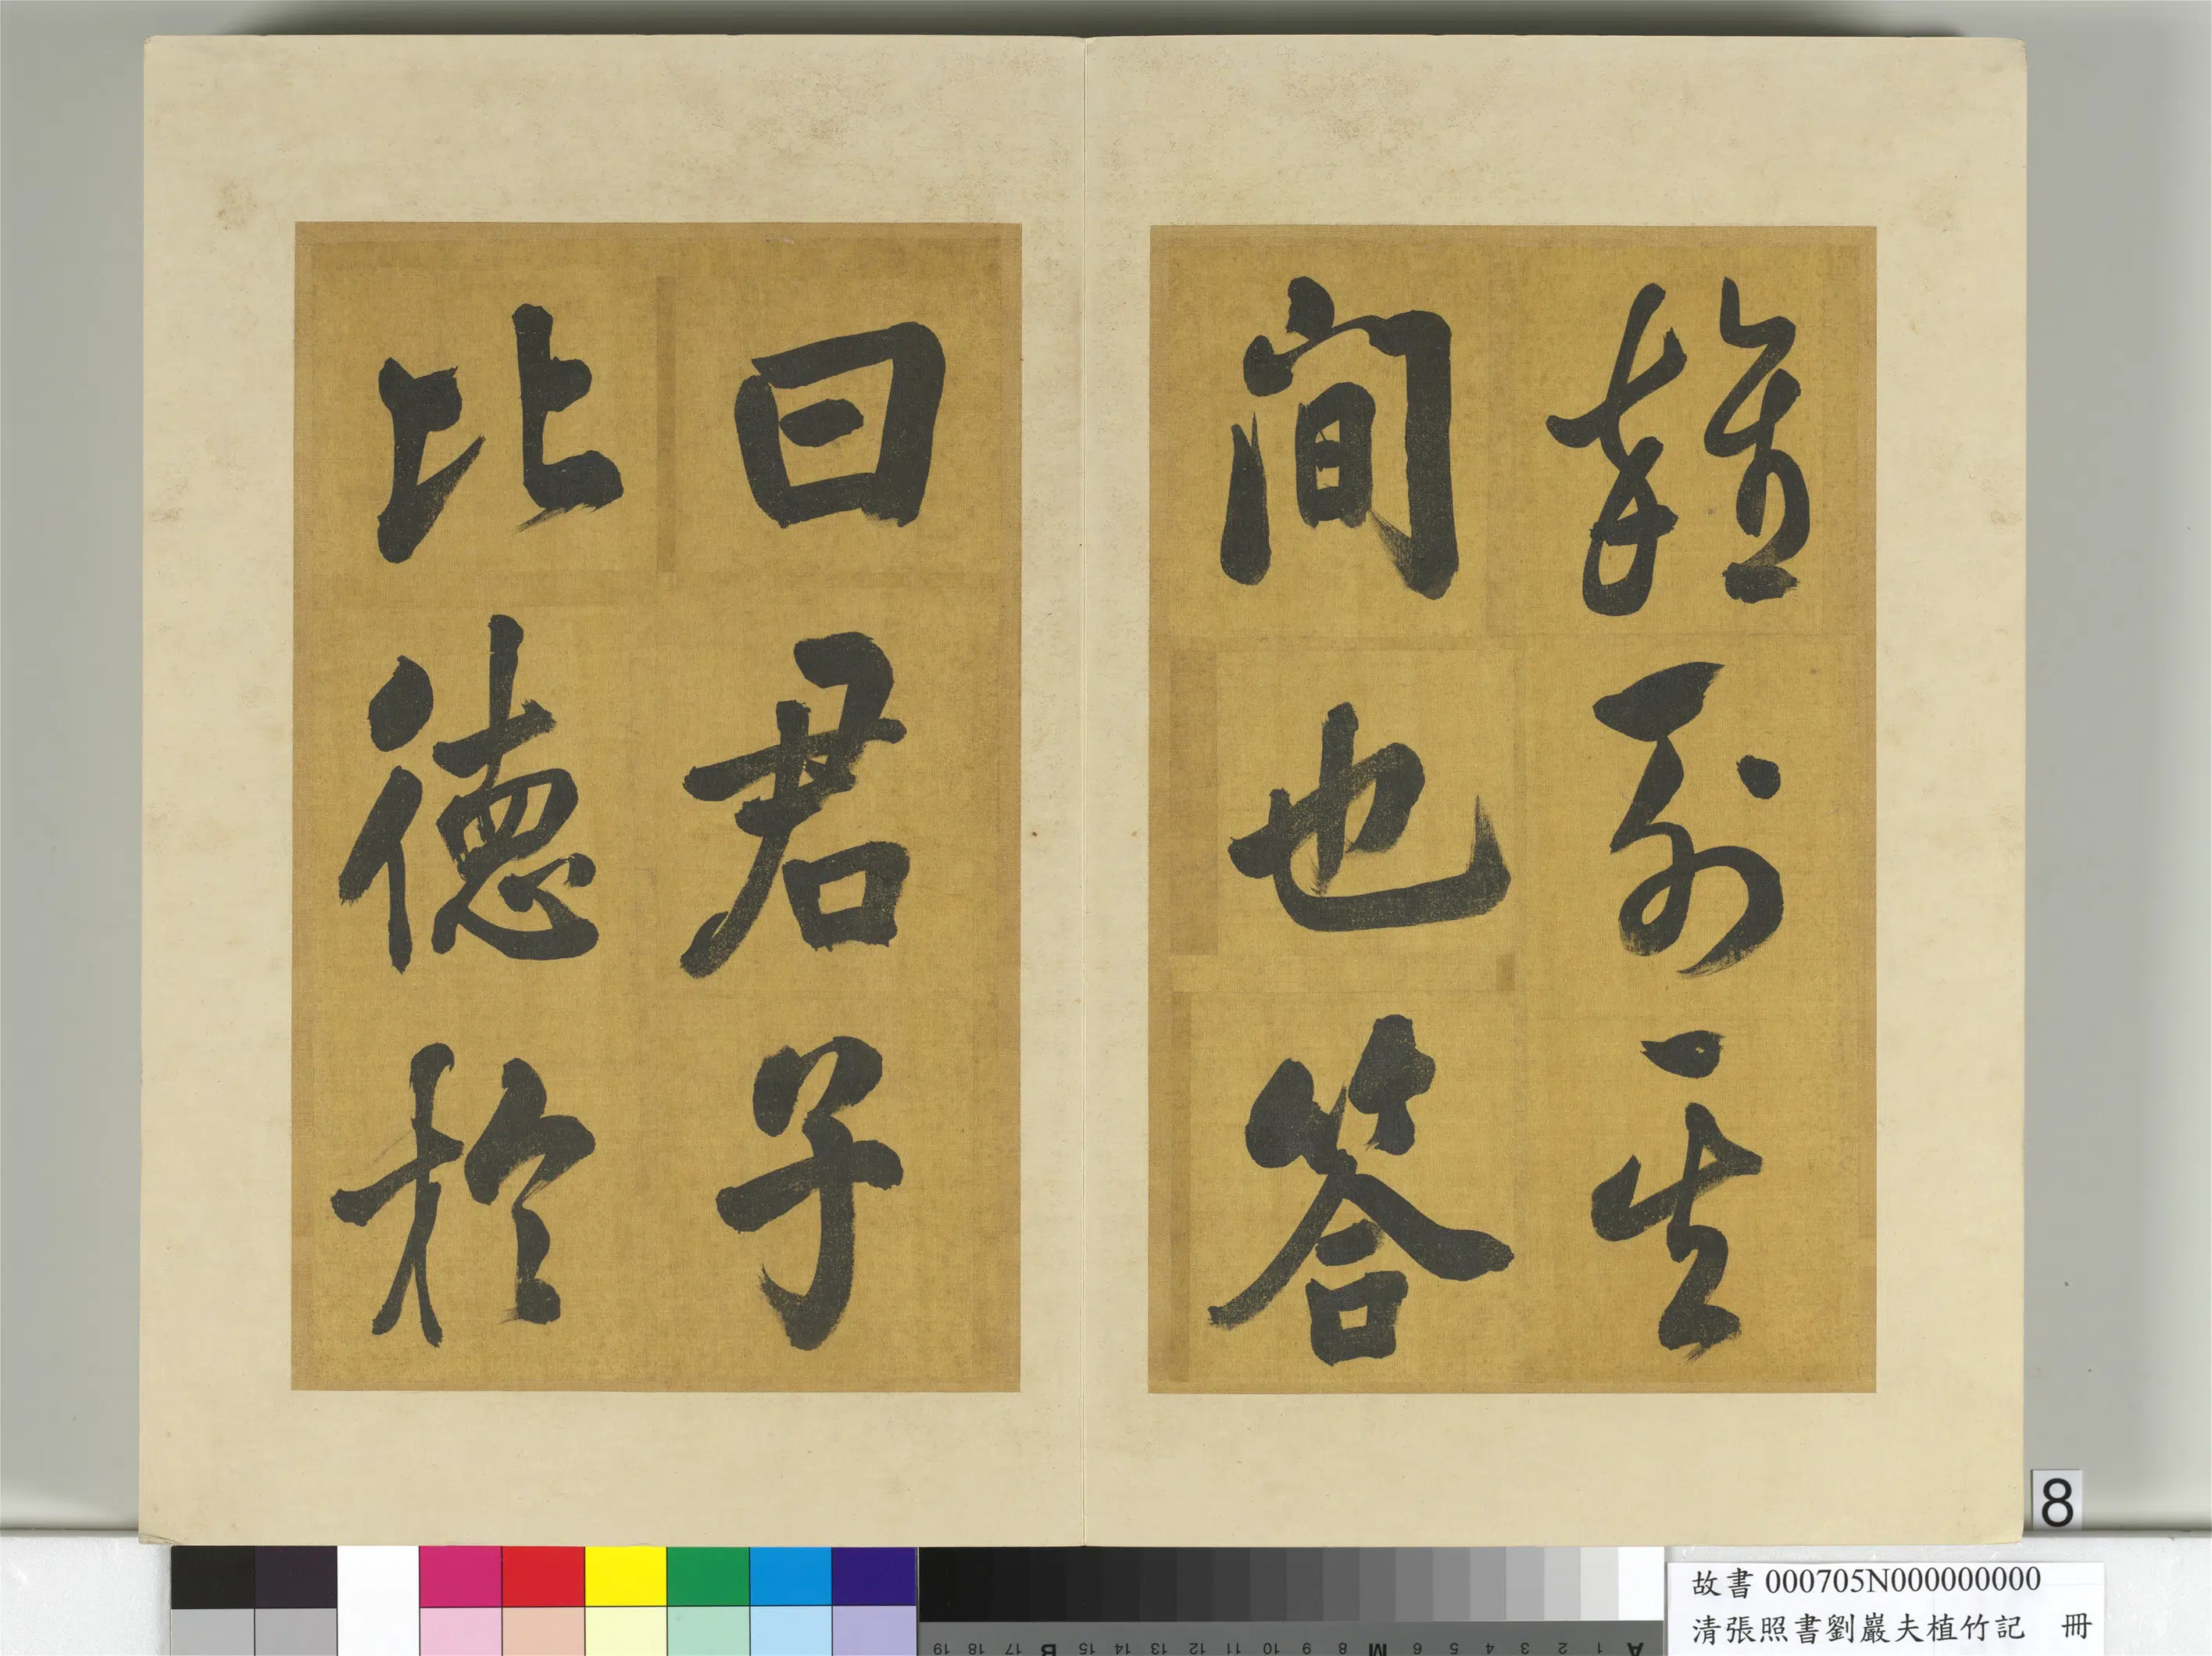 雜列其
間也答
曰君子
比德於
8
故書 000705N000000000
清張照書劉巖夫植竹記 冊
A 1 2 3 4 5 6 M 8 9 10 11 12 13 14 15 B 17 18 19